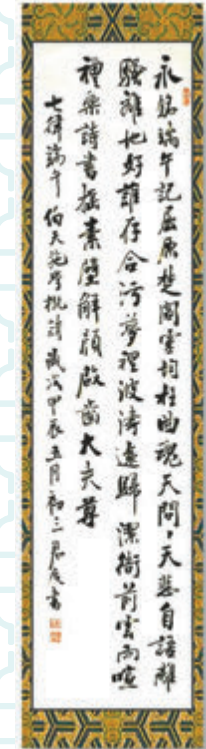 永銘端午記屈原楚閣雲祠柱曲魂天問,天愁自語離
騷離也好誰存合污夢裡波濤遠歸潔銜前雲雨喧
神樂詩書素解頤啟齒大夫尊
七律端午 伯天施學概詩 歲次甲辰五月初三 書